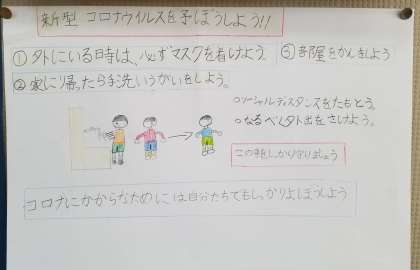 新型 コロナウイルスを予ぼうしよう!!
①外にいる時は、必ずマスクを着けよう。
③部屋をかんきしよう
②家に帰ったら手洗いうがいをしよう。
○ソーシャルディスタンスをたもとう。
○なるべく外出をさけよう。
この3密しっかり守りましょう
コロナにかからなために は、自分たちでもしっかりよぼうしよう